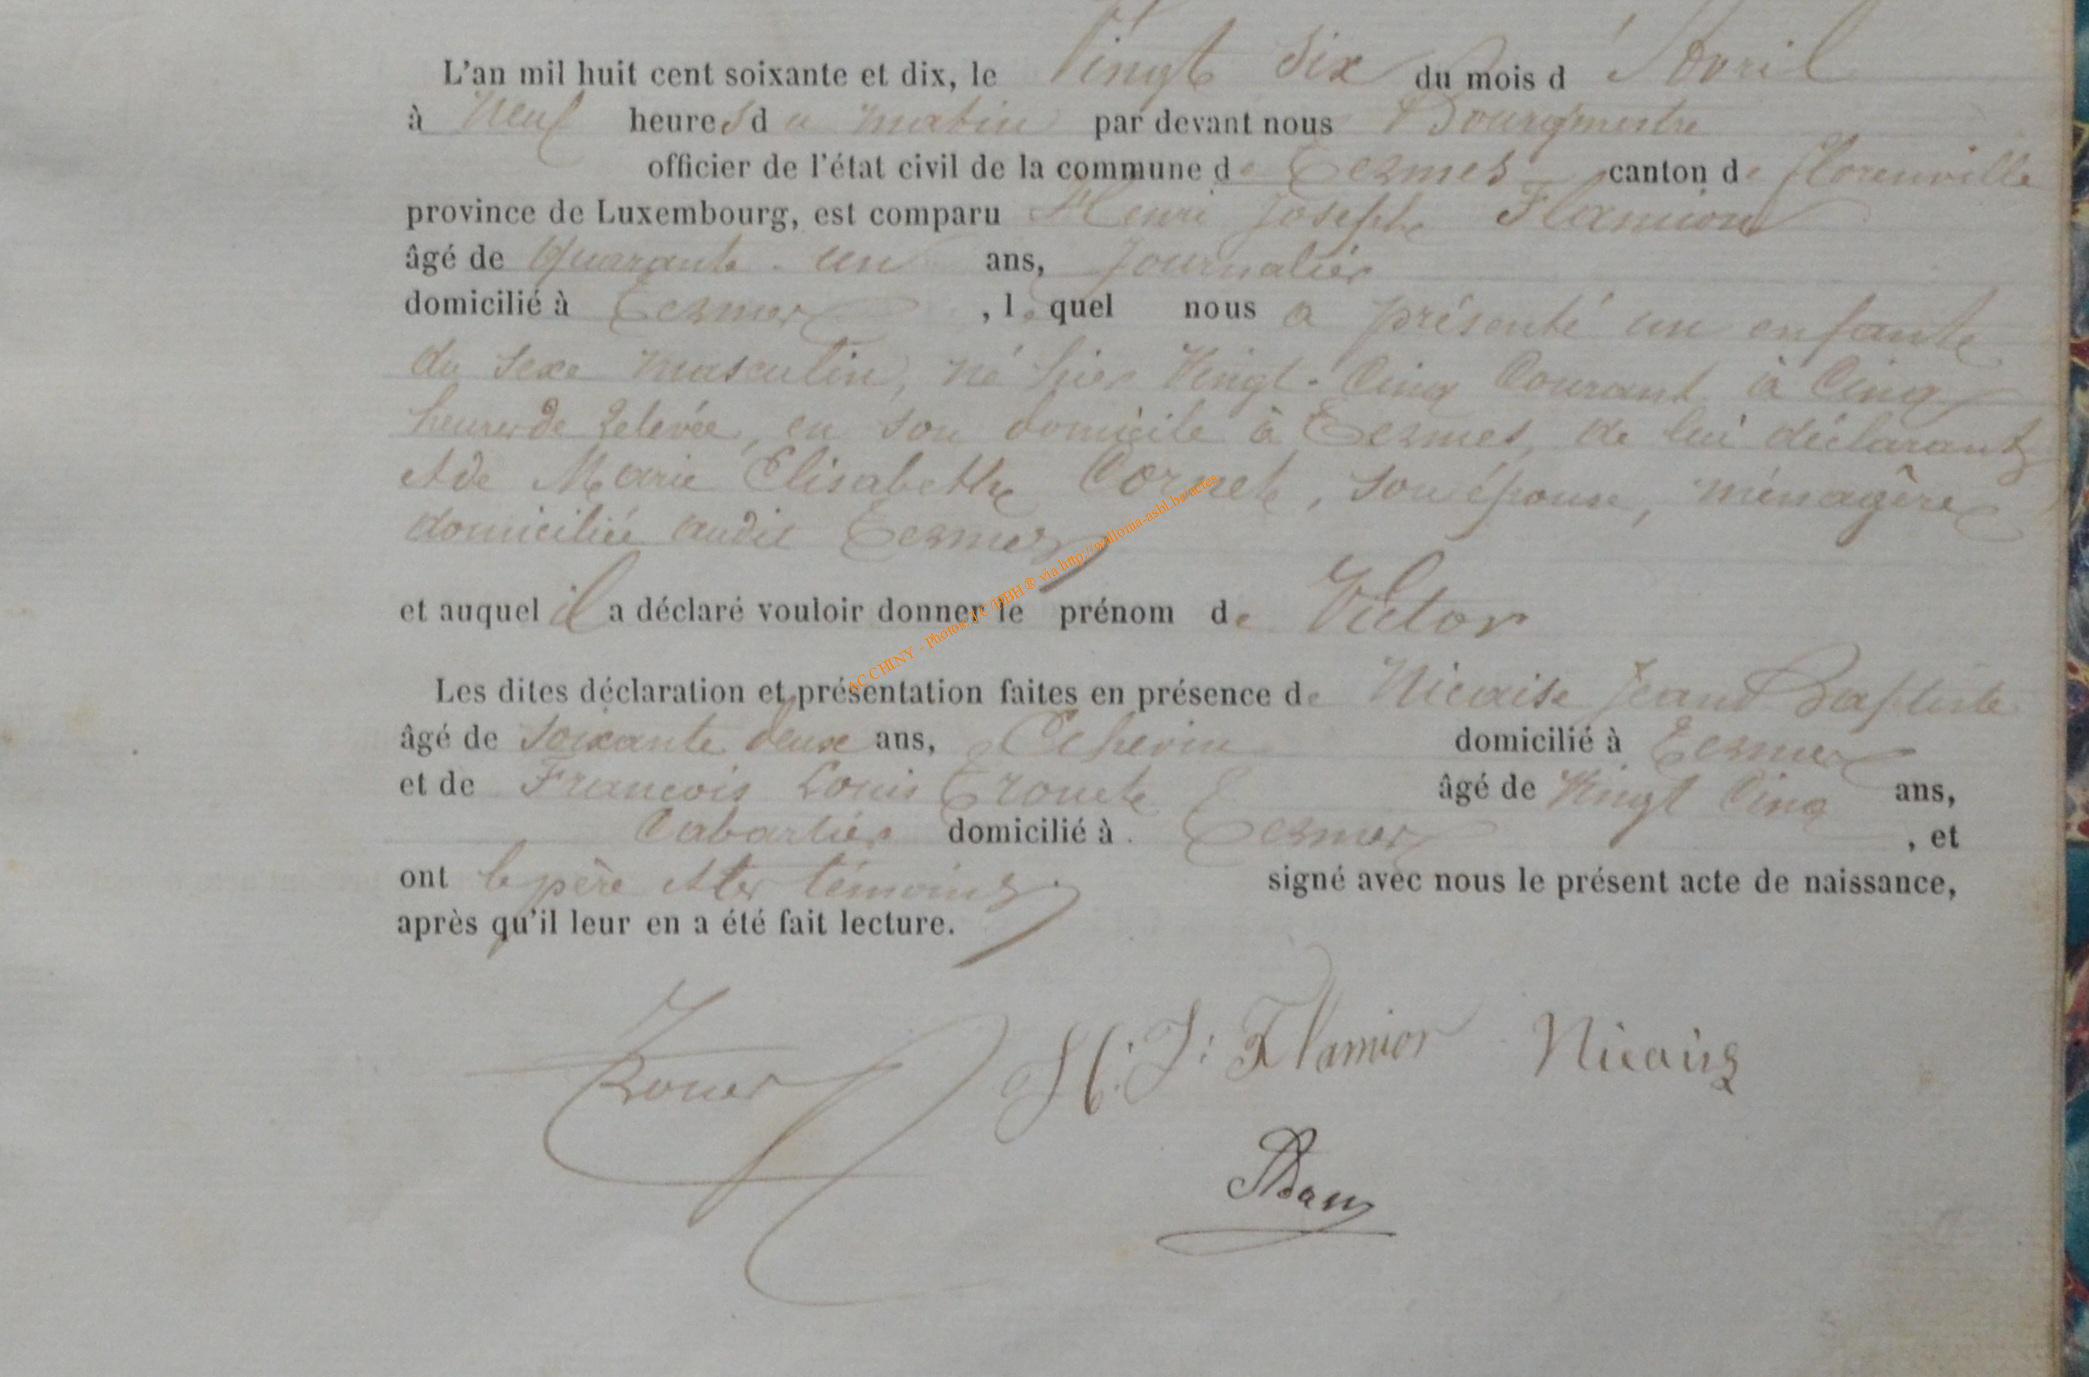 L'an mil huit cent soixante et dix, le Vingt Six du mois d'Avril
à Neuf heures du matin par devant nous Bourgmestre
officier de l'état civil de la commune de Termes canton de florenville
province de Luxembourg, est comparu Henri Joseph Flamion
âgé de quarante-un ans, journalier
domicilié à Termes, lequel nous a présenté un enfante
du sexe masculin, né hier Vingt-Cinq Courant à Cinq
heures de relevée, en son domicile à Termes, de lui déclarant
et de Marie Elisabethe Cornet, son épouse, ménagère
domiciliée audit Termes
et auquel il a déclaré vouloir donner le prénom de Victor
Les dites déclaration et présentation faites en présence de Nicaise Jean Baptiste
âgé de soixante deux ans, Echevin domicilié à Termes
et de François Louis âgé de Vingt Cinq ans,
Cabartier domicilié à Termes, et
ont le père et les témoins signé avec nous le présent acte de naissance,
après qu'il leur en a été fait lecture.
H: J: Flamion Nicaise
AC CHINY - Photos J-C HBH® via http://wallonia-asbl.be/actes